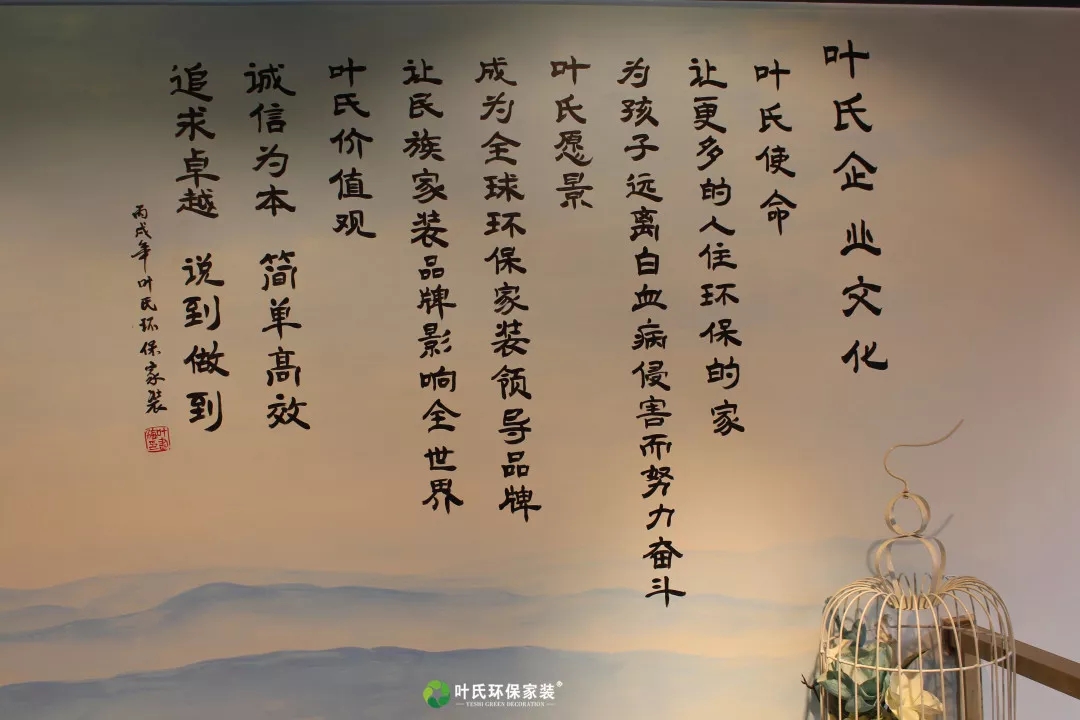 叶氏企业文化
叶氏使命
让更多的人住环保的家
为孩子远离白血病侵害而努力奋斗
叶氏愿景
成为全球环保家装领导品牌
让民族家装品牌影响全世界
叶氏价值观
诚信为本 简单高效
追求卓越 说到做到
丙戌年叶氏环保家装
叶氏环保家装®
YESHI GREEN DECORATION